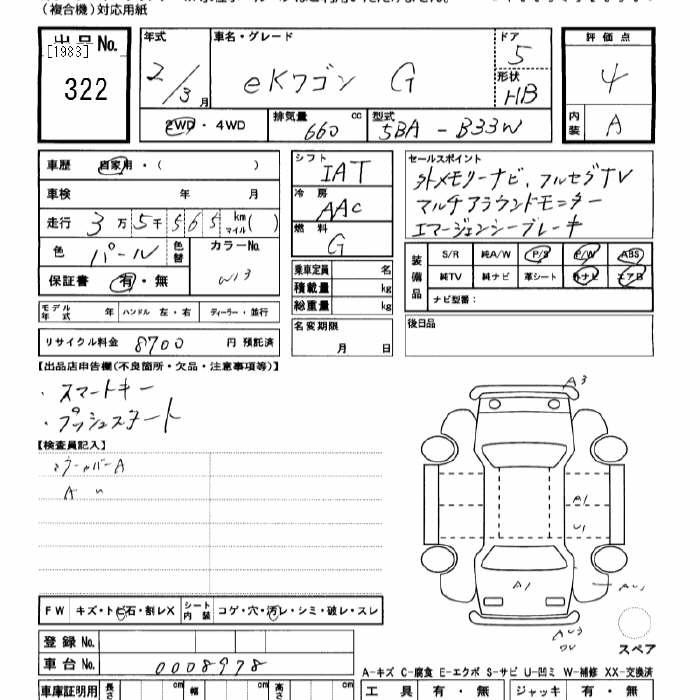 (複合機)対応用紙
出品No.
[1983]
322
年式 車名・グレード ドア
2/3月 eKワゴン G 5
形状
HB
2WD・4WD 排気量 660 cc 型式 5BA - B33W
評価点
4
内装 A
車歴 自家用・( )
車検 年 月
走行 3万5千565 km マイル( )
色 パール 色替 カラーNo. W13
保証書 有・無
モデル年式 年 ハンドル 左・右 ディーラー・並行
リサイクル料金 8700 円 預託済
シフト IAT
冷房 AAC
燃料 G
乗車定員 名
積載量 kg
総重量 kg
名変期限
月 日
セールスポイント
外メモリーナビ、フルセグTV
マルチアラウンドモニター
エマージェンシーブレーキ
装備品 S/R 純A/W P/S P/W ABS
純TV 純ナビ 革シート 外ナビ エアB
ナビ型番:
後日品
【出品店申告欄(不良箇所・欠品・注意事項等)】
・スマートキー
・プッシュスタート
【検査員記入】
A
A3
A1
U1
A1
スペア
FW キズ・トビ石・割レX シート内装 コゲ・穴・汚レ・シミ・破レ・スレ
登録No.
車台No. 0008978
A-キズ C-腐食 E-エクボ S-サビ U-凹ミ W-補修 XX-交換済
車庫証明用 長さ cm 幅 cm 高さ cm
工具 有・無 ジャッキ 有・無